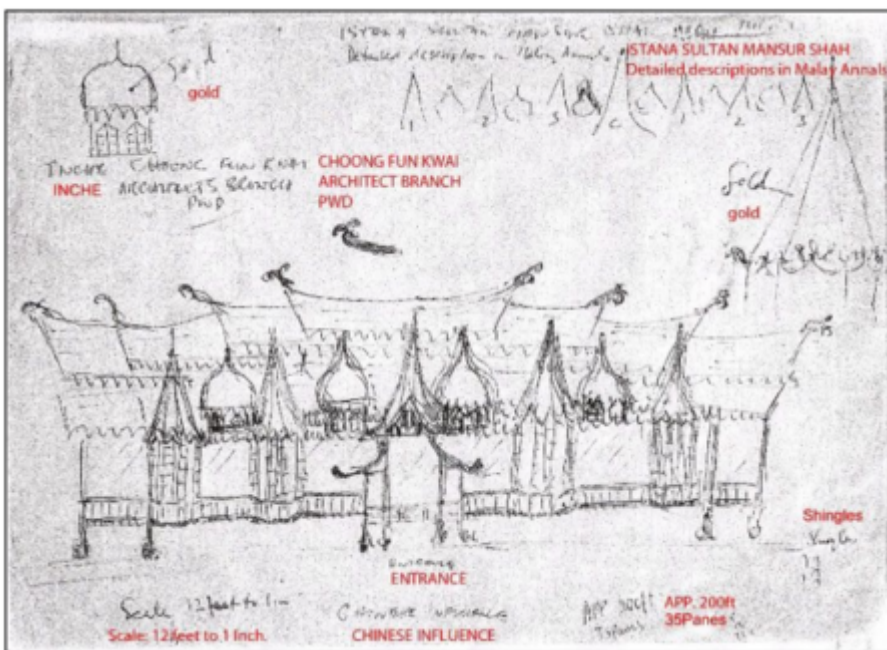 ISTANA SULTAN MANSUR SHAH
Detailed description in Malay Annals
ISTANA SULTAN MANSUR SHAH
Detailed descriptions in Malay Annals
gold
1 2 3 1 2 3
INCHE CHOONG FUN KWAI
ARCHITECTS BRANCH
PWD
INCHE
CHOONG FUN KWAI
ARCHITECT BRANCH
PWD
Gold
gold
Shingles
ENTRANCE
ENTRANCE
Scale 12 feet to 1 in
Scale: 12 feet to 1 Inch.
CHINESE INFLUENCE
CHINESE INFLUENCE
APP 200ft
APP. 200ft
35Panes